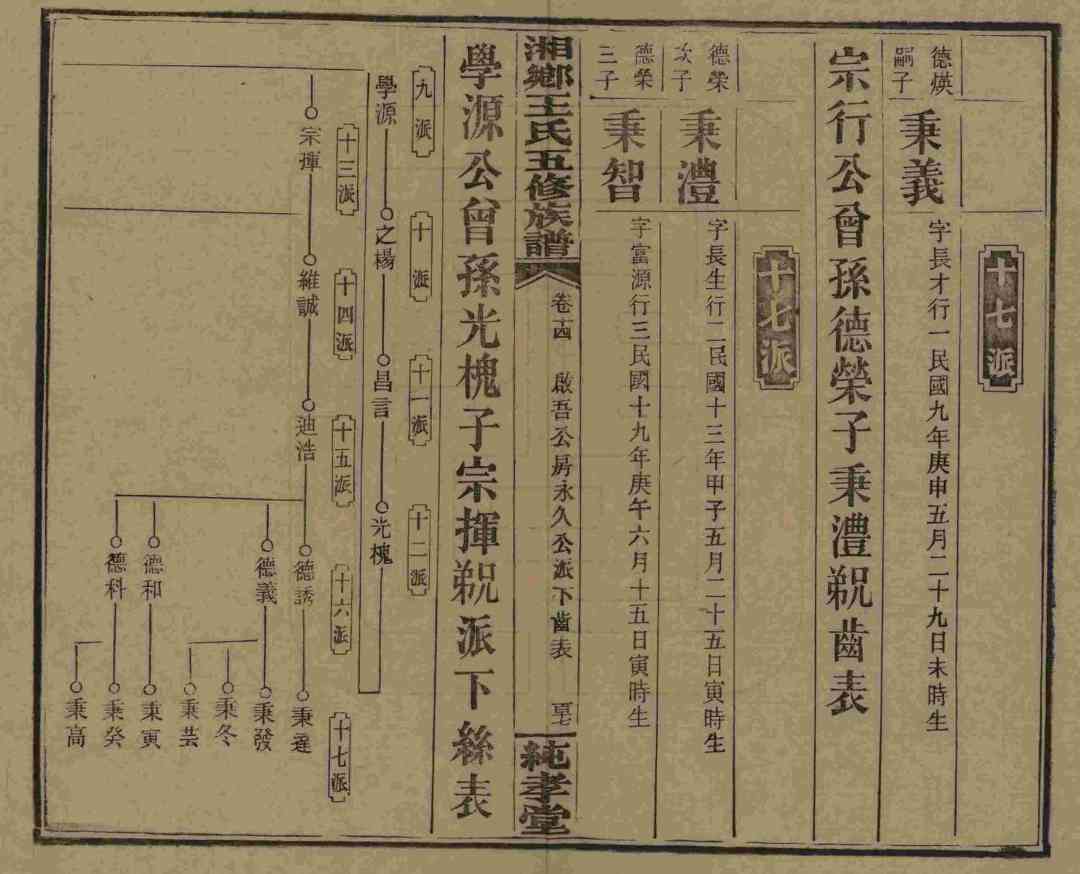 十七派
德煐
嗣子
秉義
字長才行一民國九年庚申五月二十九日未時生
宗行公曾孫德榮子秉澧𥙿齒表
十七派
德榮
次子
秉澧
字長生行二民國十三年甲子五月二十五日寅時生
德榮
三子
秉智
字富源行三民國十九年庚午六月十五日寅時生
湘鄉王氏五修族譜
卷十四 啟吾公房永久公派下齒表
純孝堂
學源公曾孫光槐子宗揮派下絲表
九派
十派
十一派
十二派
學源
之楊
昌言
光槐
十三派
十四派
十五派
十六派
十七派
宗揮
維誠
迪浩
德誘
德義
德和
德科
秉發
秉冬
秉芸
秉寅
秉癸
秉高